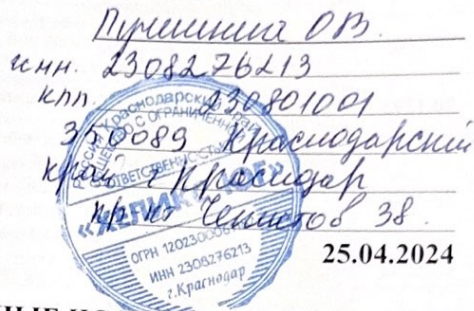 Пушкина О.В.
инн. 2308276213
кпп. 230801001
350089 Краснодарский
край г Краснодар
пр-кт Чекистов 38.
РОССИЯ Краснодарский край
ОБЩЕСТВО С ОГРАНИЧЕННОЙ
ОТВЕТСТВЕННОСТЬЮ
ОГРН 12023000
ИНН 2308276213
г.Краснодар
25.04.2024